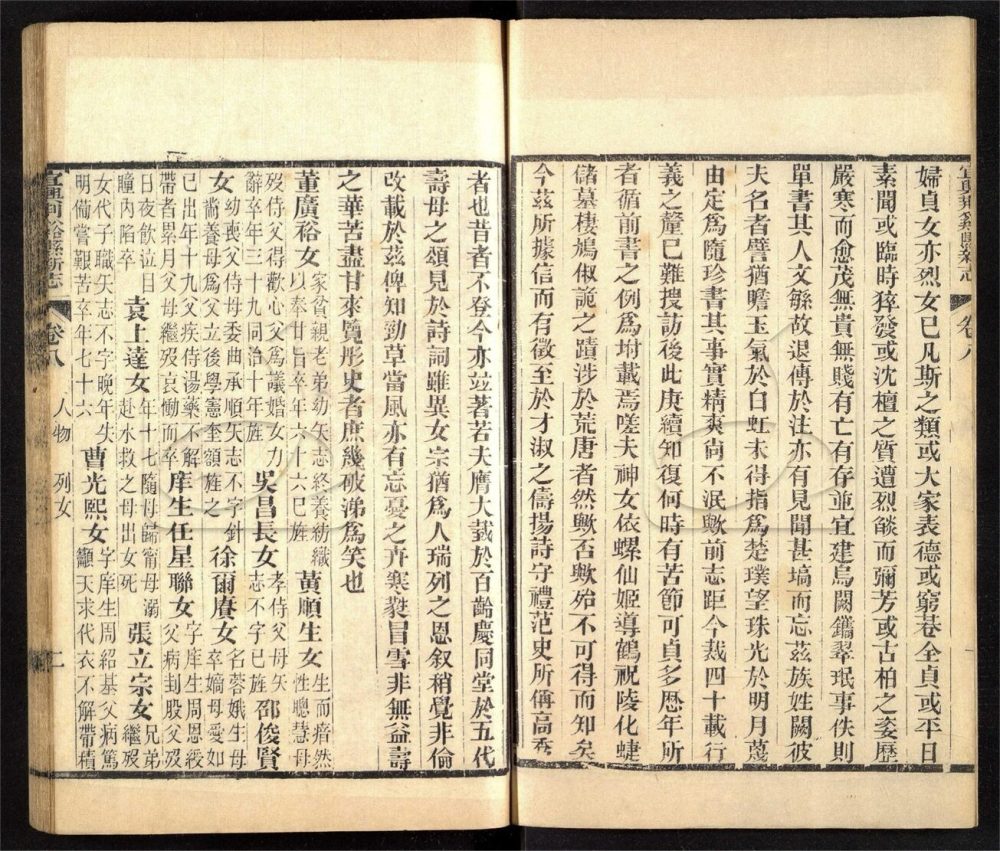 婦貞女亦烈女已凡斯之類或大家表德或窮巷全貞或平日
素閒或臨時猝發或沈檀之質遭烈燄而彌芳或古柏之姿歷
嚴寒而愈茂無貴無賤有亡有存並宜建烏闕鐫翠珉事佚則
單書其人文緐故退傳於注亦有見聞甚塙而忘茲族姓闕彼
夫名者譬猶瞻玉氣於白虹未得指爲楚璞望珠光於明月蔑
由定爲隨珍書其事實精爽尙不泯歟前志距今裁四十載行
義之釐已難搜訪後此庚續知復何時有苦節可貞多歷年所
者循前書之例爲坿載焉嗟夫神女依螺仙姬導鶴祝陵化蜨
儲墓棲鳩俶詭之蹟涉於荒唐者然歟否歟殆不可得而知矣
今茲所據信而有徵至於才淑之儔揚詩守禮范史所偁高秀
宜興荆谿縣新志
卷八
一
者也昔者不登今亦竝著若夫膺大耋於百齡慶同堂於五代
壽母之頌見於詩詞雖異女宗猶爲人瑞列之恩叙稍覺非倫
改載於茲俾知勁草當風亦有忘憂之卉寒蕤冒雪非無益壽
之華苦盡甘來覽彤史者庶幾破涕爲笑也
董廣裕女家貧親老弟幼矢志終養紡織以奉甘旨卒年六十六已旌 黃順生女生而瘖然性聰慧母
歿侍父得歡心父爲議婚女力辭卒年三十九同治十年旌 吳昌長女孝侍父母矢志不字已旌 邵俊賢
女幼喪父侍母委曲承順矢志不字針黹養母爲父立後學憲奎額旌之 徐爾賡女名蓉娥生母卒嫡母愛如
己出年十九父疾侍湯藥不解帶者累月父母繼歿哀慟而卒 庠生任星聯女字庠生周恩綬父病刲股父歿
日夜飮泣目瞳內陷卒 袁上達女年十七隨母歸甯母溺赴水救之母出女死 張立宗女兄弟繼歿
女代子職矢志不字晚年失明備嘗艱苦卒年七十六 曹光熙女字庠生周紹基父病篤籲天求代衣不解帶積
宜興荆谿縣新志
卷八
人物 列女
二